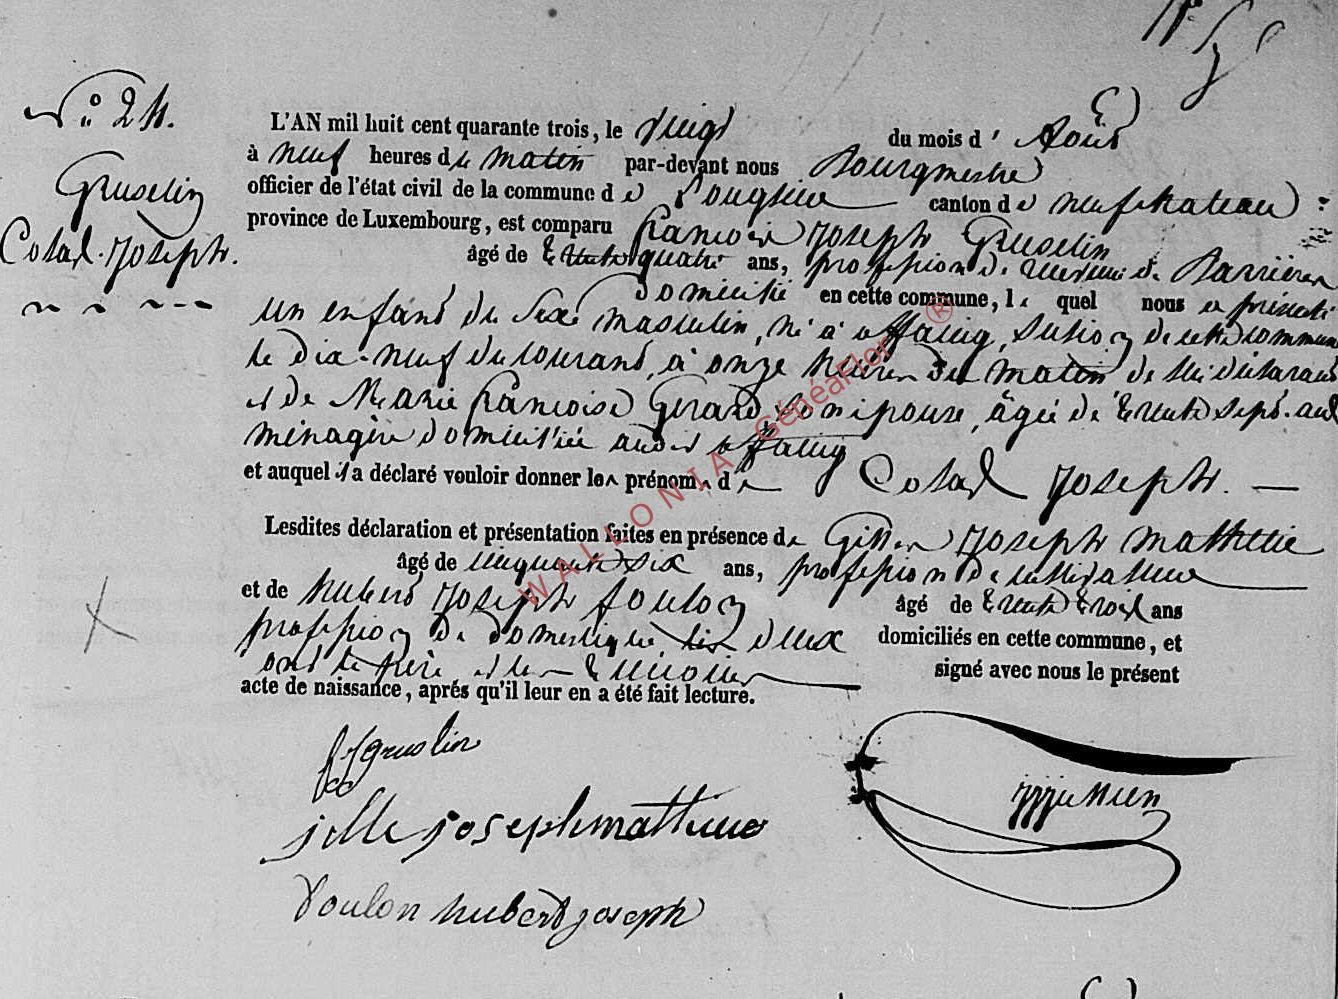 N° 24.
Gruselin
Cosad Joseph.
L'AN mil huit cent quarante trois, le vingt du mois d' Août
à neuf heures du matin par-devant nous Bourgmestre
officier de l'état civil de la commune de canton de neufchateau
province de Luxembourg, est comparu françois Joseph Gruselin
âgé de trente quatre ans, profession de Barrières
domicilié en cette commune, le quel nous a présenté
un enfant du sexe masculin, né à offaing, section de cette commune
le dix-neuf du courant, à onze heures du matin de lui déclarant
et de Marie françoise Gerard son épouse, âgée de trente sept ans
ménagère domiciliée audit offaing
et auquel il a déclaré vouloir donner les prénoms de Cosad Joseph. —
Lesdites déclaration et présentation faites en présence de Gilles Joseph mathieu
âgé de cinquante six ans, profession de cultivateur
et de hubert Joseph foulon âgé de trente trois ans
profession de domestique, les deux domiciliés en cette commune, et
ont le père et les témoins signé avec nous le présent
acte de naissance, aprés qu'il leur en a été fait lecture.
fJgruslin
jille joseph mathieu
foulon hubert joseph
WALLONIA - GénéaFlor ®